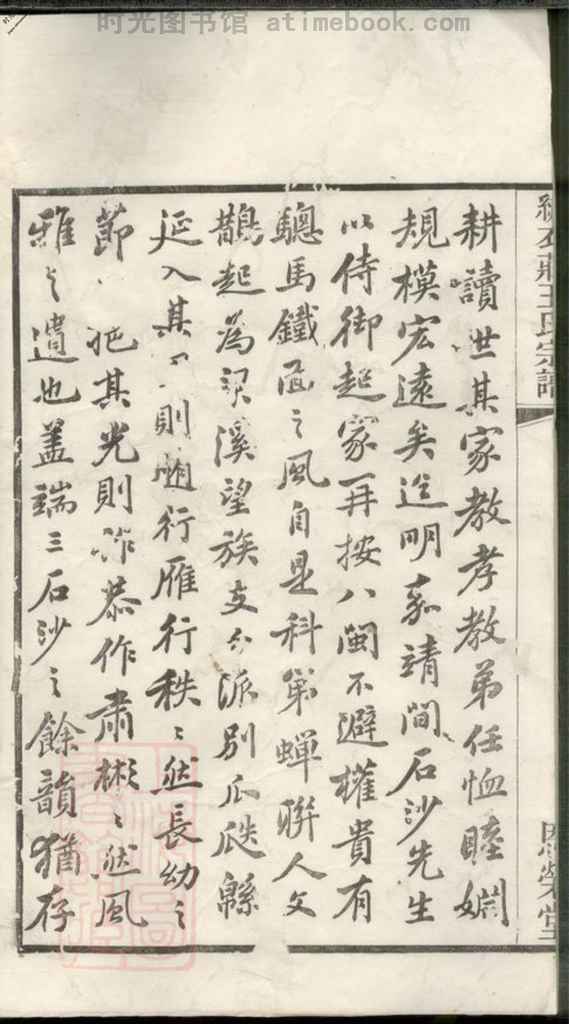 时光图书馆 atimebook.com
王氏宗譜
思榮堂
耕讀世其家教孝教弟任恤睦婣
規模宏遠矣迨明嘉靖間石沙先生
以侍御起家再按八閩不避權貴有
驄馬鐵面之風自是科第蟬聯人文
鵲起為梁溪望族支分派別瓜瓞緜
延入其 則隨行雁行秩〻然長幼之
節 挹其光則 恭作肅彬〻然風
雅之遺也蓋端三石沙之餘韻猶存